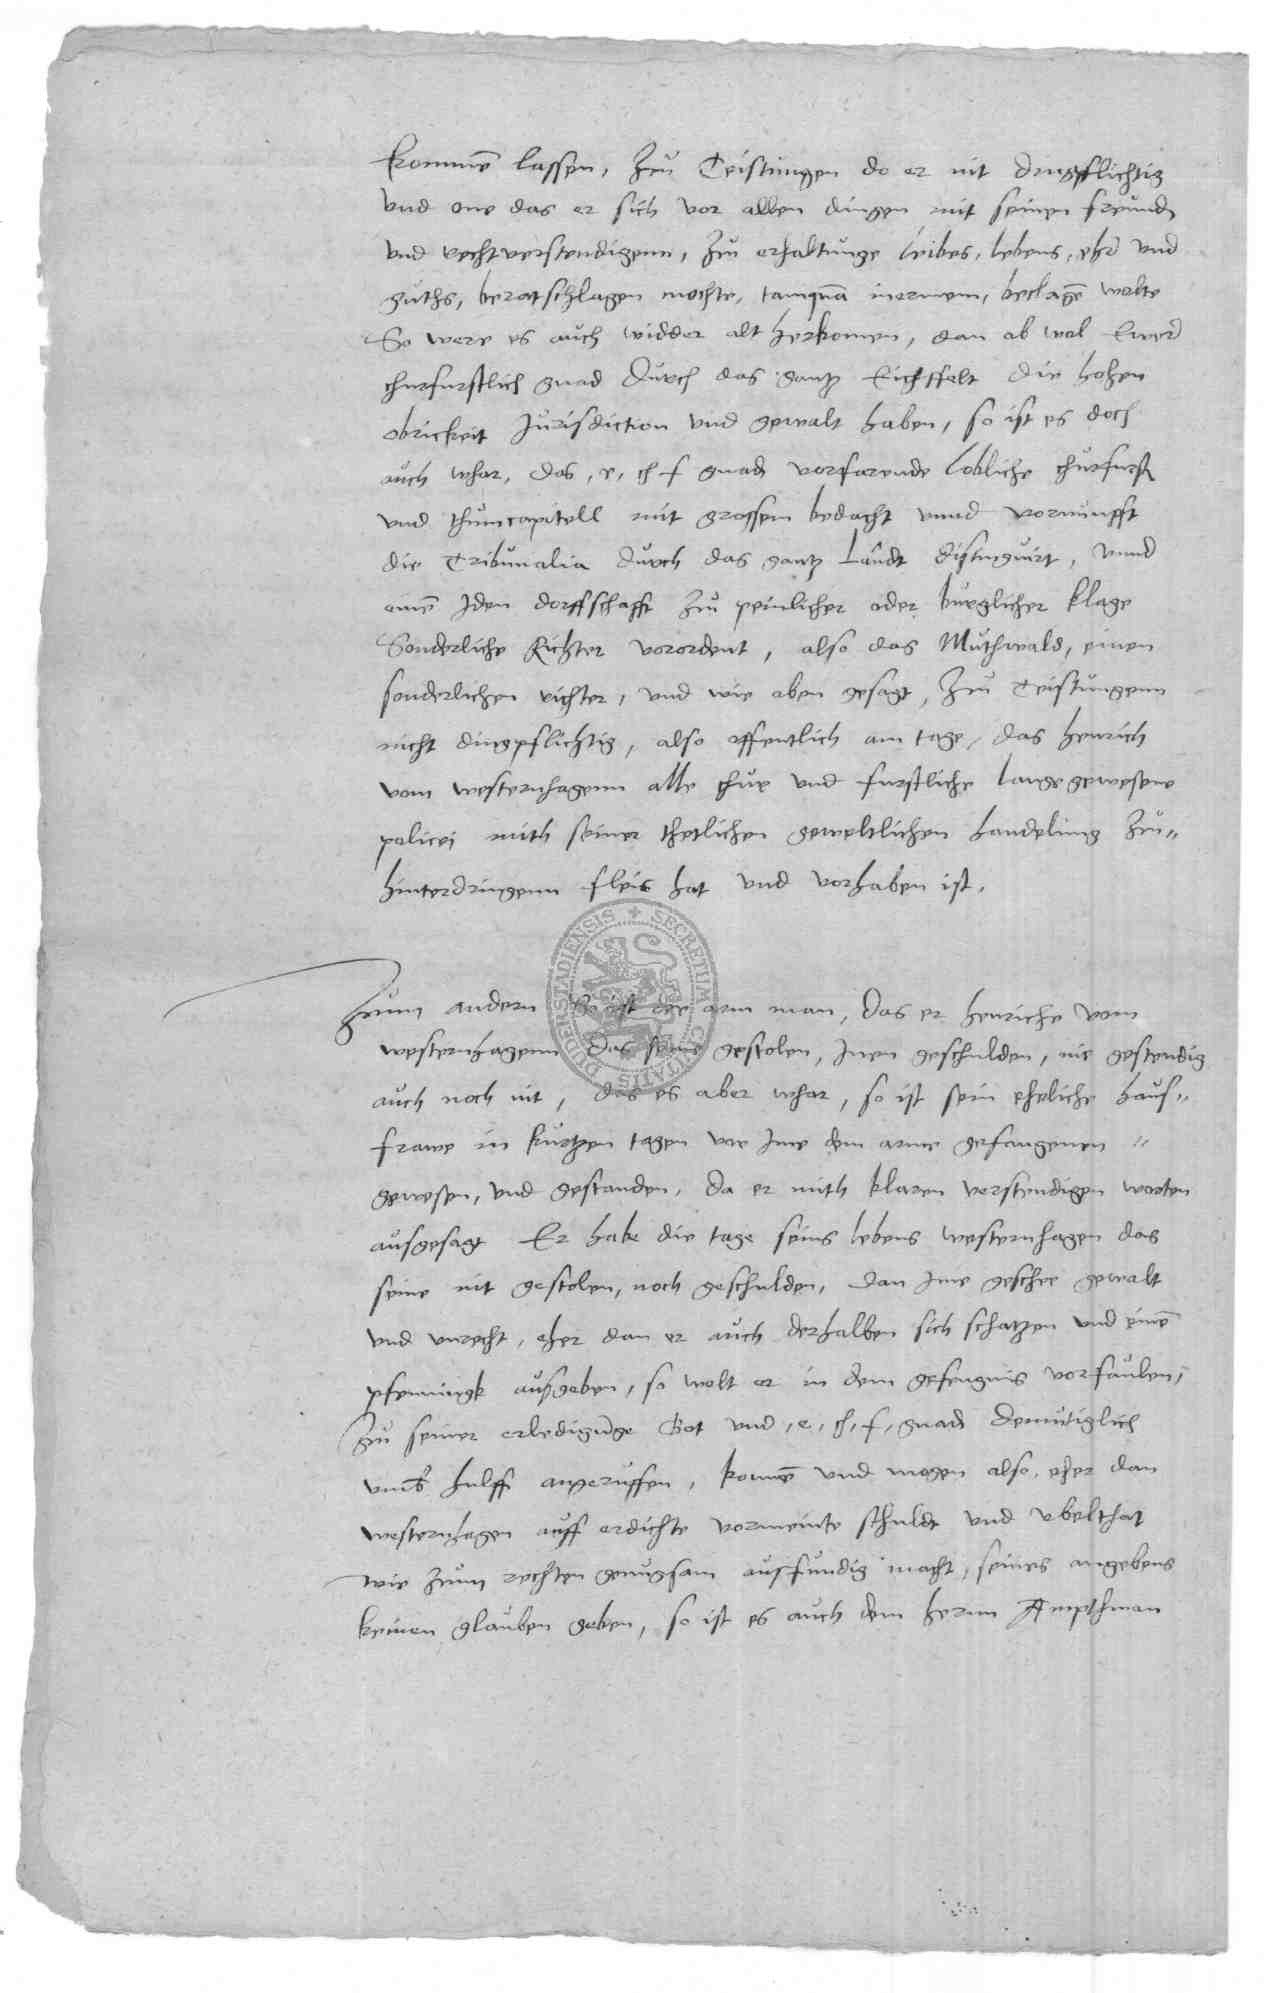 kommē lassen, Zu Teistungen do er nit dingpflichtig
vnd one das er sich vor allen dingen mit seinen freund
vnd rechtverstendigenn, Zu erhaltunge leibes, lebens, ehr vnd
guths, beratschlagen mochte, tamquā inermem, beclagē wolte
So were es auch widder alt herkomen, dan ab wol Ewer
churfurstlich gnad durch das gantz Eichsfelt die hohen
obrickeit Jurisdiction vnd gewalt haben, so ist es doch
auch whar, das, e, ch f gnad vorfarende lobliche churfurst
vnd thumcapitell mit grossem bedacht vnnd vornunfft
die Tribunalia durch das gantz Landt distinguirt, vnnd
einē Jden dorffschafft Zu peinlicher oder burglicher klage
Sonderliche Richter vorordent, also das Muthwald, einen
sonderlichen richter, vnd wie aben gesagt, Zu Teistungenn
nicht dingpflichtig, also offentlich am tage, das Henrich
vom westernhagenn alle chur vnd furstliche lange gewesene
policei mith seiner thetlichen geweltlichen handelung Zu"
hinterdringenn fleis hat vnd vorhaben ist.
Zum andern So ist der arm man, das er Henriche vom
westernhagenn das seine gestolen, Jnen geschulden, nie gestendig
auch noch nit, das es aber whar, so ist sein eheliche hauf"
frawe in kurtzen tagen vor Jme dem arme gefangenen "
gewesen, vnd gestanden, da er mith klaren verstendigen worten
ausgesagt Er habe die tage seins lebens westernhagen das
seine nit gestolen, noch geschulden, dan Jme geschee gewalt
vnd vnrecht, eher dan er auch derhalben sich schatzen vnd einē
pfenningk ausgeben, so wolt er in dem gefengnis vorfaulen,
Zu seiner erledigunge Got vnd, e, ch, f, gnad demutiglich
vmb hulff angeruffen, konnē vnd mogen also, eher dan
westernhagen auff erdichte vormeinte schuldt vnd vbelthat
wie Zum rechten genugsam ausfundig macht, seines angebens
keinen glauben geben, so ist es auch dem hernn Ampthman
SECRETUM CIVITATIS DUDERSTADIENSIS